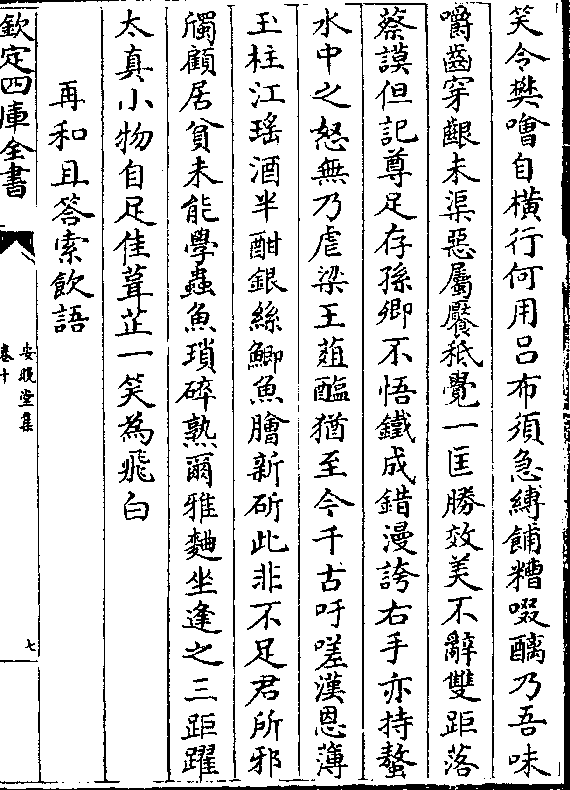 笑令樊噲自橫行何用呂布須急縛餔糟啜醨乃吾味
嚼齒穿齦未渠惡屬饜秪覺一匡勝效美不辭雙距落
蔡謨但記尊足存孫卿不悟鐵成錯漫誇右手亦持螯
水中之怒無乃虐梁王葅醢猶至今千古吁嗟漢恩薄
玉柱江瑤酒半酣銀絲鯽魚膾新斫此非不足君所邪
髑顧居貧未能學蟲魚瑣碎熟爾雅麴坐逢之三距躍
太真小物自足佳葺芷一笑為飛白
再和且答索飲語
欽定四庫全書
安晚堂集
卷十
七